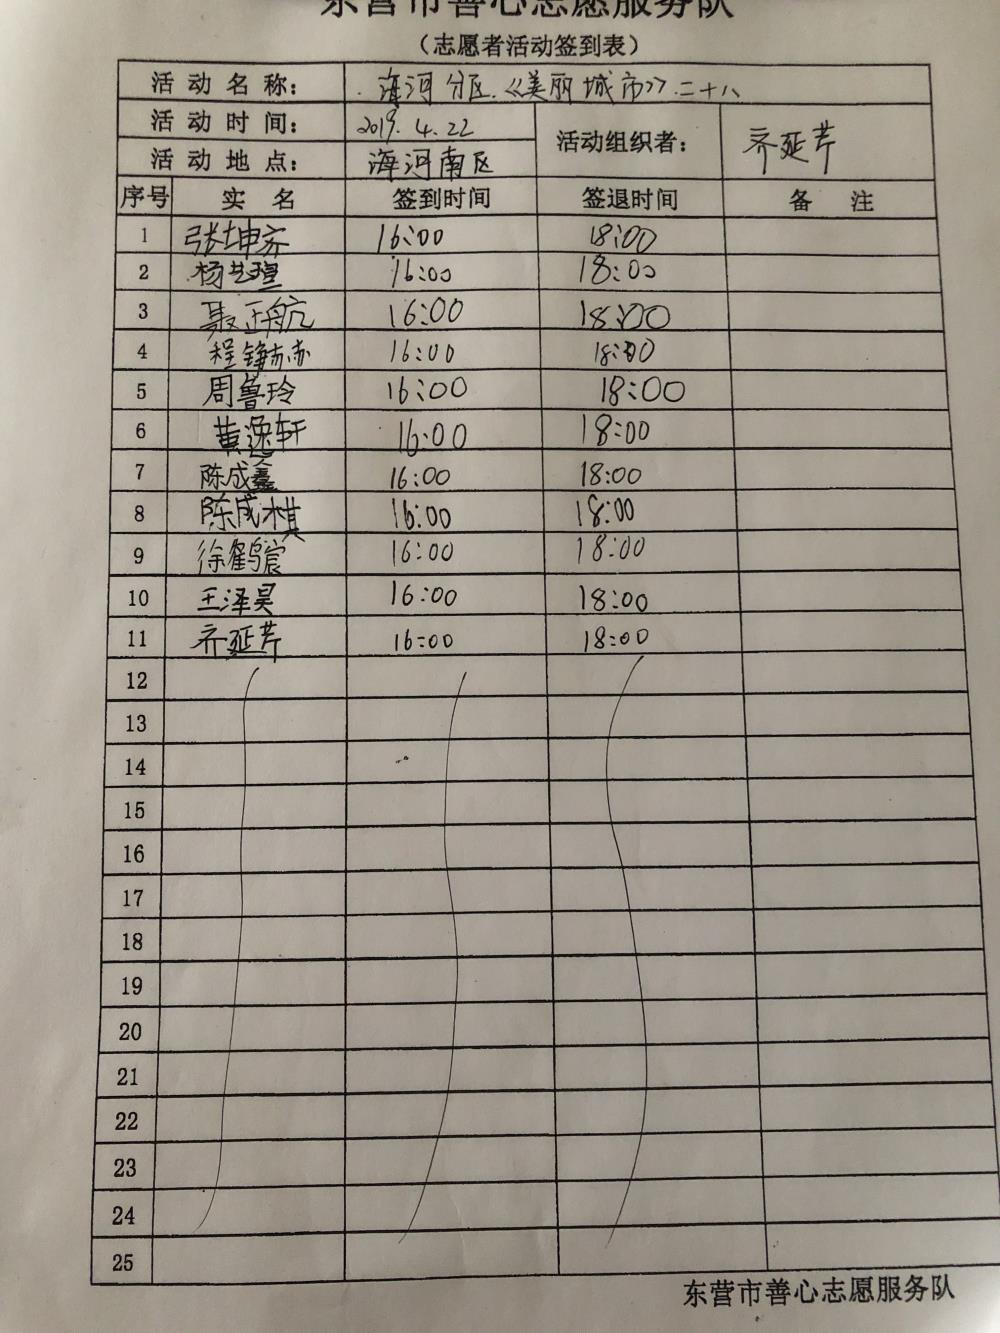 东营市善心志愿服务队
（志愿者活动签到表）
活动名称： 海河分区.《美丽城市》.二十八
活动时间： 2019.4.22 活动组织者： 齐延芹
活动地点： 海河南区
序号 实名 签到时间 签退时间 备注
1 张坤齐 16:00 18:00
2 杨艺瑄 16:00 18:00
3 聂正航 16:00 18:00
4 程 16:00 18:00
5 周鲁玲 16:00 18:00
6 黄逸轩 16:00 18:00
7 陈成鑫 16:00 18:00
8 陈成棋 16:00 18:00
9 徐鹤宸 16:00 18:00
10 王泽昊 16:00 18:00
11 齐延芹 16:00 18:00
12
13
14
15
16
17
18
19
20
21
22
23
24
25
东营市善心志愿服务队